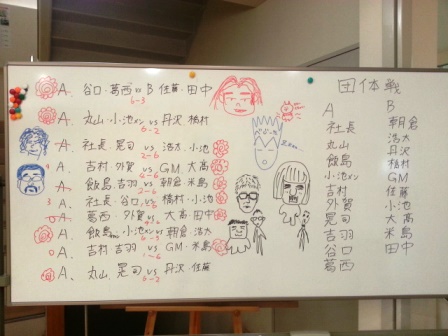 A. 谷口・葛西 vs B 佐藤・田中
6-3
A. 丸山・小池メン vs 丹沢 橋村
6-2
A. 社長 晃司 vs 浩太 小池
2-6
A. 吉村・外賀 vs GM・大高
A. 飯島・吉羽 vs 朝倉・米島
2-6
A. 社長・谷口 vs 橋村・小池
A. 葛西・外賀 vs 大高 田中
A. 飯島 小池メン vs 朝倉 浩太
A. 吉村 吉羽 vs GM・米島
1-6
A. 丸山 晃司 vs 丹沢 佐藤
6-2
団体戦
A B
社長 朝倉
丸山 浩太
飯島 丹沢
小池メン 橋村
吉村 GM
外賀 佐藤
晃司 小池
吉羽 大高
谷口 米島
葛西 田中